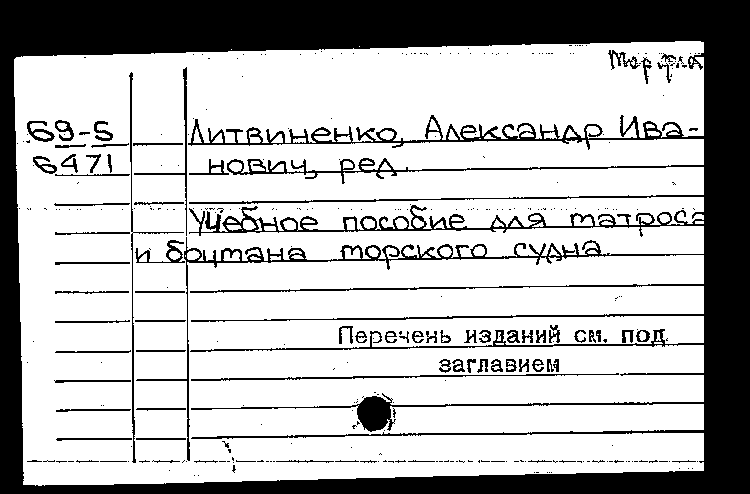 Мор. флот
69-5 Литвиненко, Александр Ива-
6471 нович, ред.
Учебное пособие для матроса
и боцмана морского судна.
Перечень изданий см. под
заглавием